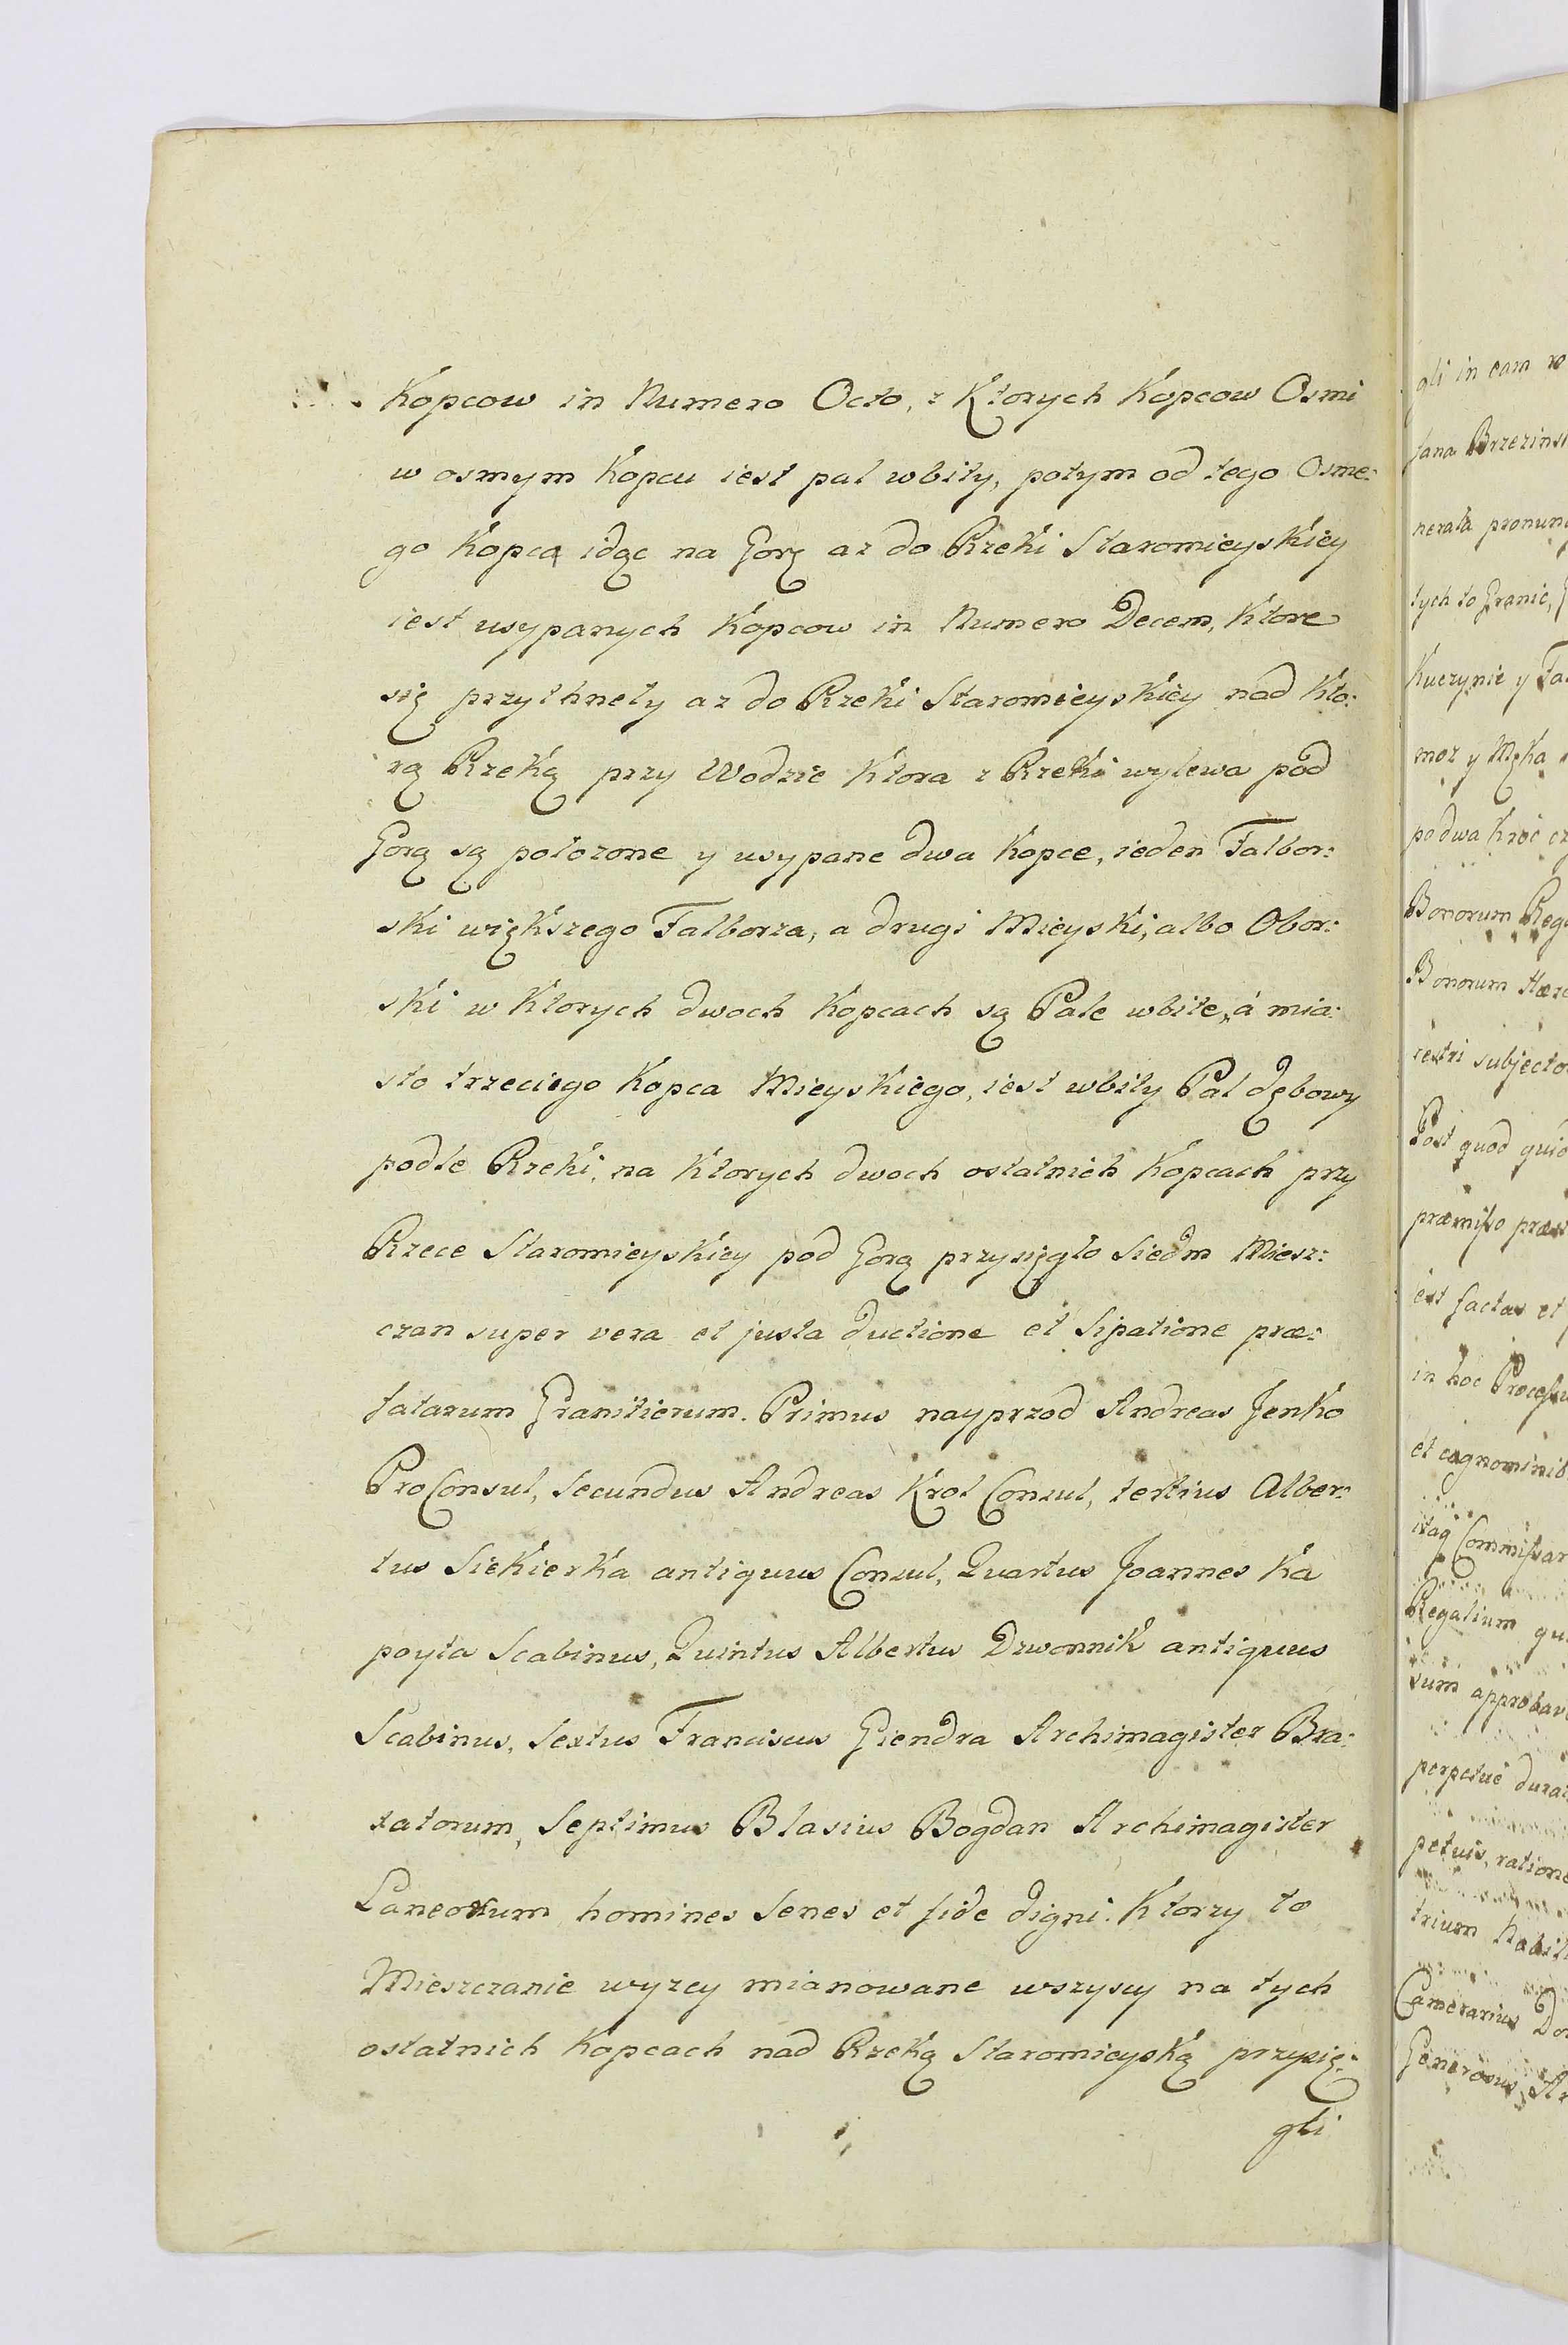 Kopcow in Numero Octo, z Ktorych Kopcow Osmi
w osmym Kopcu iest pal wbity, potym od tego Osme:
go Kopca idąc na Gorę az do Rzeki Staromieyskiey
iest usypanych Kopcow in Numero Decem, Ktore
się przythneły az do Rzeki Staromieyskiey nad Kto:
rą Rzeką przy Wodzie Ktora z Rzeki wylewa pod
Gorą są połozone y usypane dwa Kopce, ieden Falbor:
ski większego Falborza, a drugi Mieyski, albo Obor:
ski w Ktorych dwoch Kopcach są Pale wbite, á mia:
sto trzeciego Kopca Mieyskiego, iest wbity Pal dębowy
podle Rzeki, na Ktorych dwoch ostatnich Kopcach przy
Rzece Staromieyskiey pod Gorą przysięgło Siedm Miesz:
czan super vera et justa ductione et Sipatione præ:
fatarum Granitierum. Primus nayprzod Andreas Jenko
ProConsul, Secundus Andreas Krol Consul, tertius Alber:
tus Siekierka antiquus Consul, Quartus Joannes Ka
poyta Scabinus, Quintus Albertus Dzwonnik antiquus
Scabinus, Sextus Franciscus Giendra Archimagister Bra:
xatorum, Septimus Blasius Bogdan Archimagister
Laneorum homines Senes et fide digni. Ktorzy to
Mieszczanie wyzey mianowane wszyscy na tych
ostatnich Kopcach nad Rzeką Staromieyską przysię:
gli
gli in eam
fana Brzezins
nerata pronun
tych to Granic,
Kuczynie y Fa
moz y Męka
po dwa Kroć
Bonorum Reg
Bonorum Hære
restri subjecto
Post quod quid
præmisso præs
est factas et
in hoc Processu
et cognominib
itaq Commissar
Regalium qu
sum approbav
perpetuè dura
petuis, ratione
trium Nobili
Camerarius Do
Generosus A